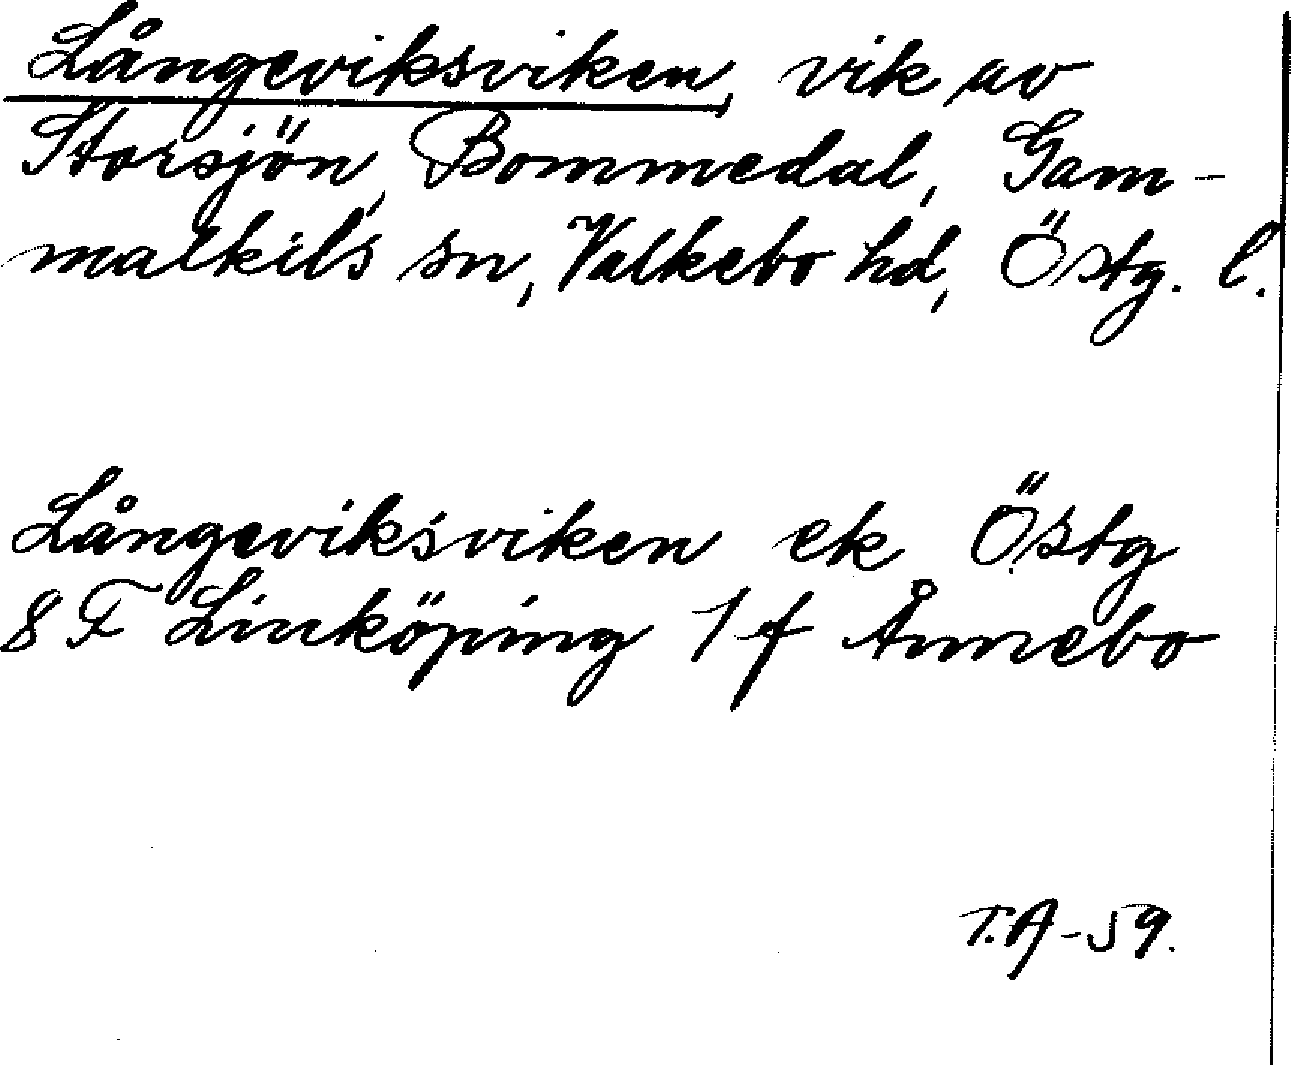 Långeviksviken, vik av
Storsjön, Bommedal, Gam-
malkils sn, Valkebo hd, Östg. l.
Långeviksviken ek Östg
8 F Linköping 1 f Ånnebo
T.A-59.